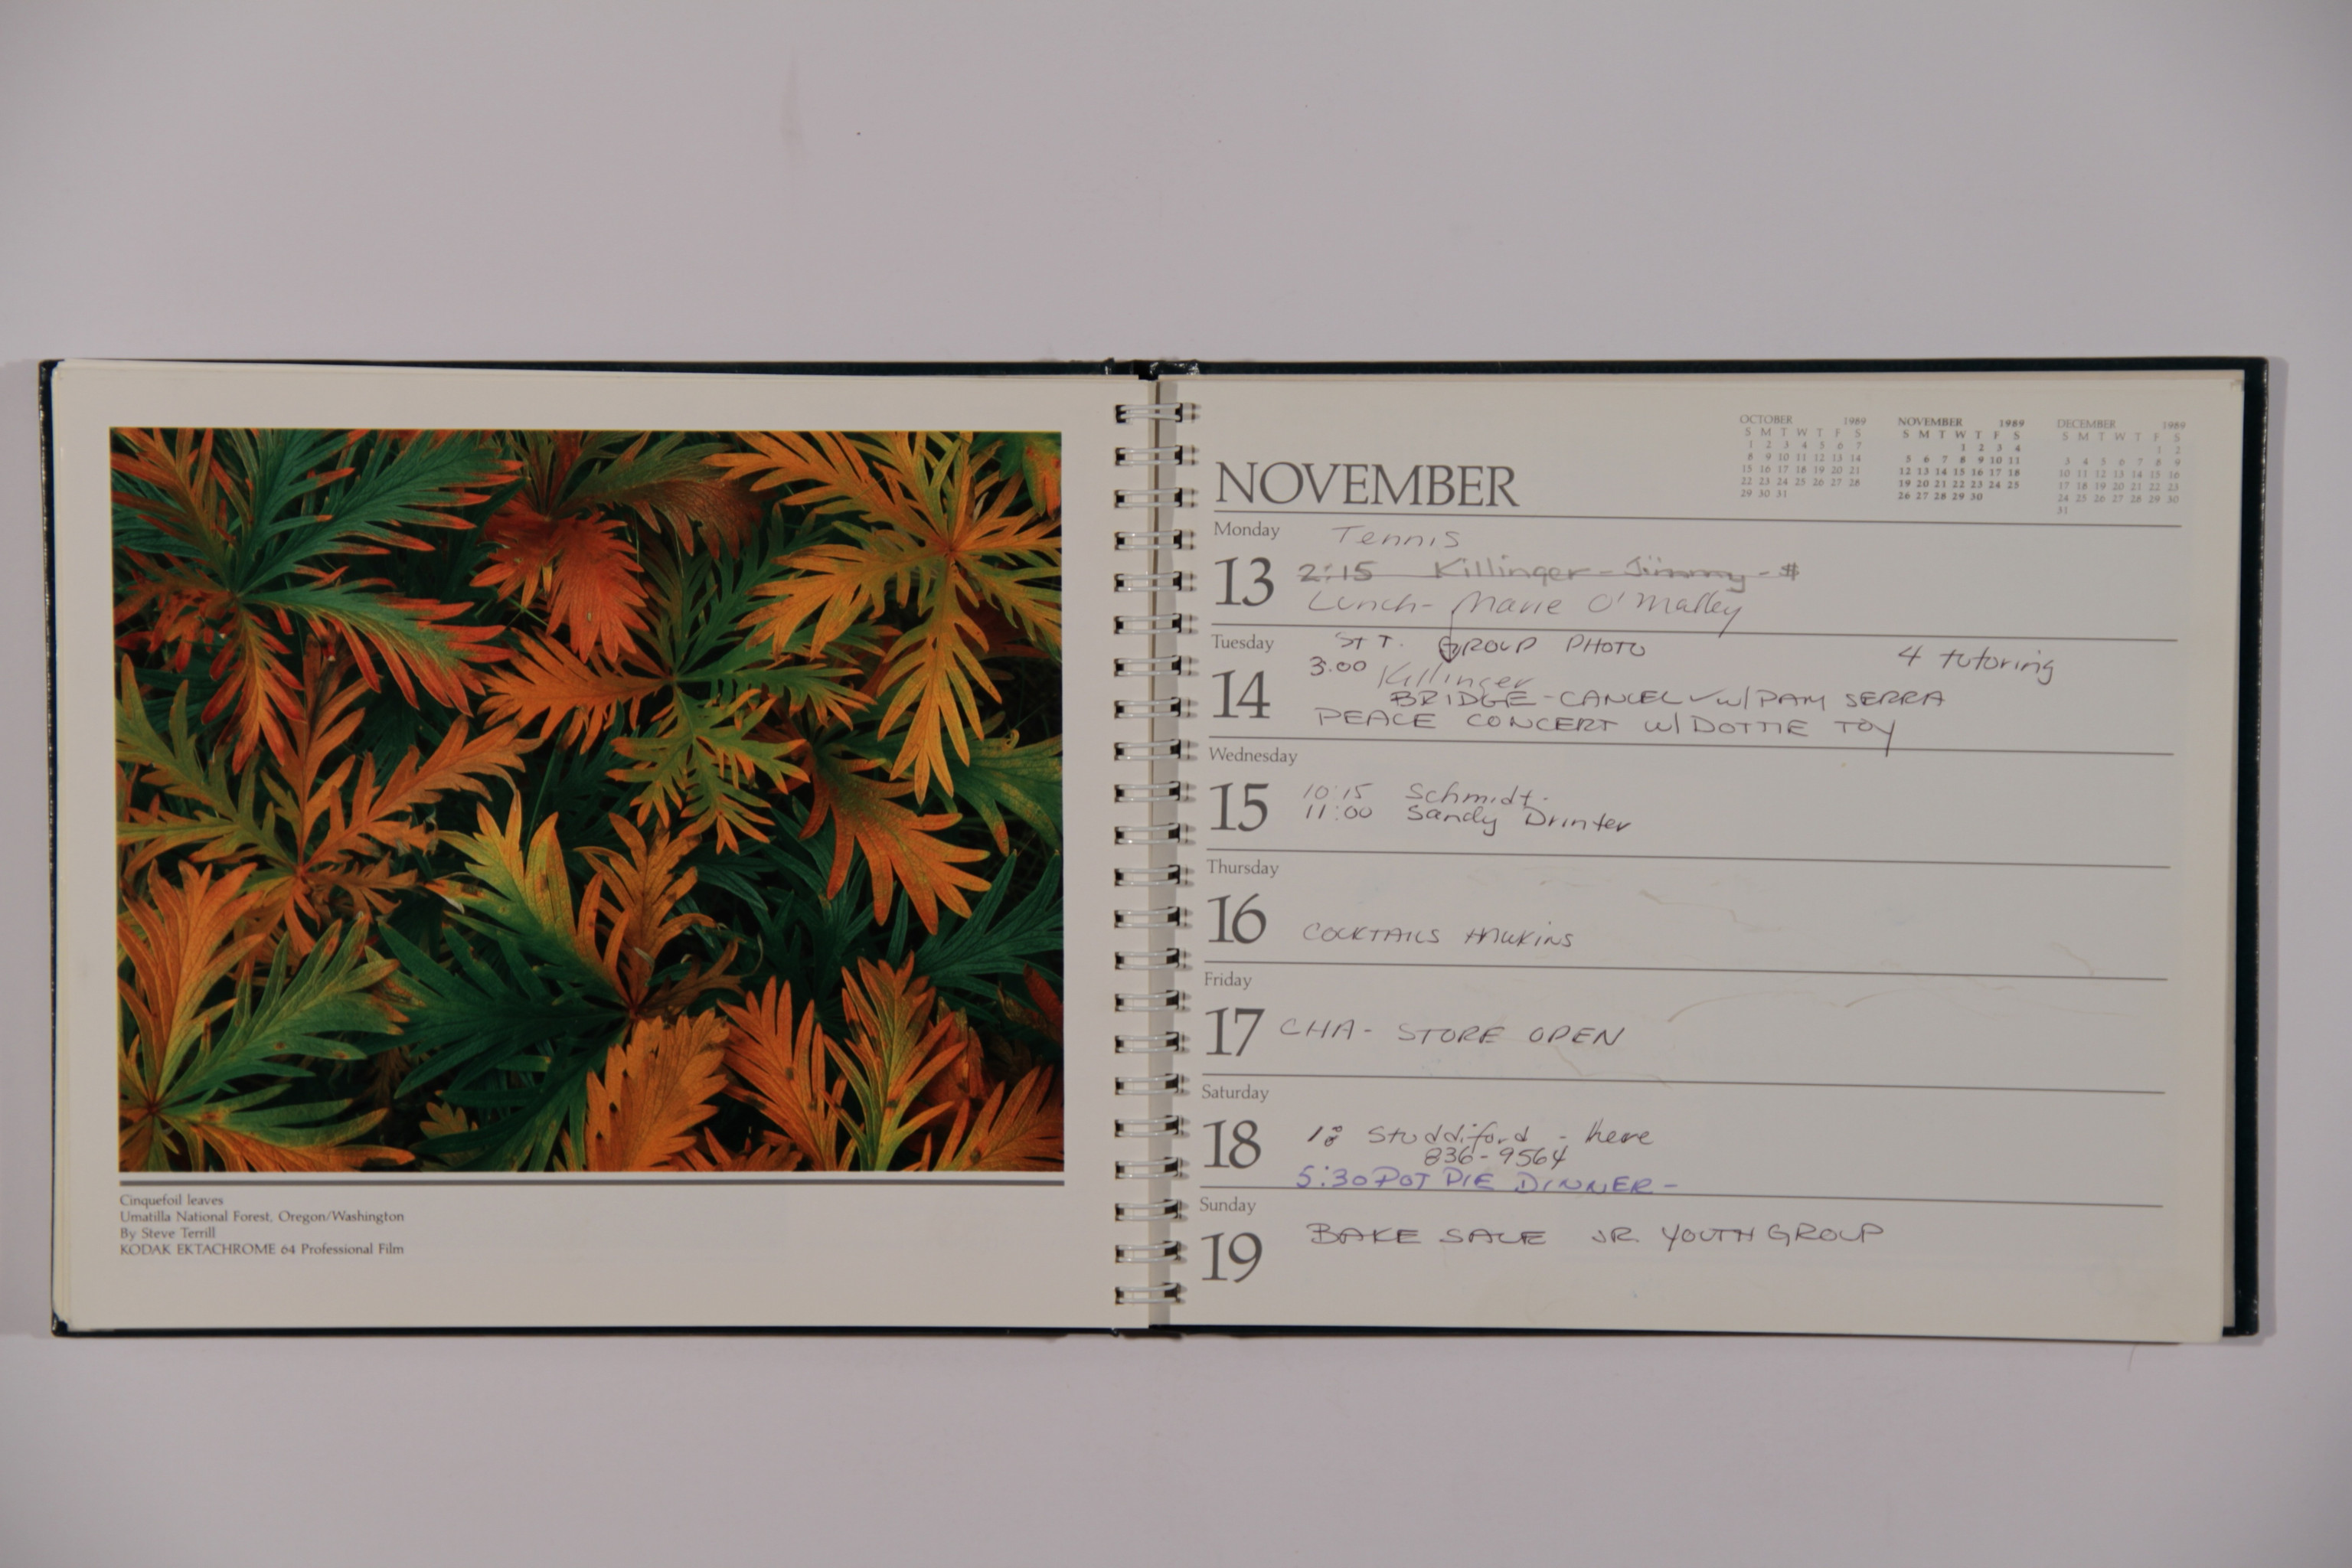 OCTOBER 1989
S M T W T F S
1 2 3 4 5 6 7
8 9 10 11 12 13 14
15 16 17 18 19 20 21
22 23 24 25 26 27 28
29 30 31
NOVEMBER 1989
S M T W T F S
1 2 3 4
5 6 7 8 9 10 11
12 13 14 15 16 17 18
19 20 21 22 23 24 25
26 27 28 29 30
DECEMBER 1989
S M T W T F S
1 2
3 4 5 6 7 8 9
10 11 12 13 14 15 16
17 18 19 20 21 22 23
24 25 26 27 28 29 30
31
NOVEMBER
Monday
Tennis
13 2:15 Killinger - Jimmy - $
Lunch - Marie O'Malley
Tuesday
ST T. GROUP PHOTO 4 tutoring
3:00 Killinger
14 BRIDGE - CANCEL ✓ w/ PAM SERRA
PEACE CONCERT w/ DOTTIE TOY
Wednesday
15 10:15 Schmidt
11:00 Sandy Drinter
Thursday
16 COCKTAILS HAWKINS
Friday
17 CHA - STORE OPEN
Saturday
18 Studdiford - here
836-9564
5:30 POT PIE DINNER -
Sunday
19 BAKE SALE JR. YOUTH GROUP
Cinquefoil leaves
Umatilla National Forest, Oregon/Washington
By Steve Terrill
KODAK EKTACHROME 64 Professional Film